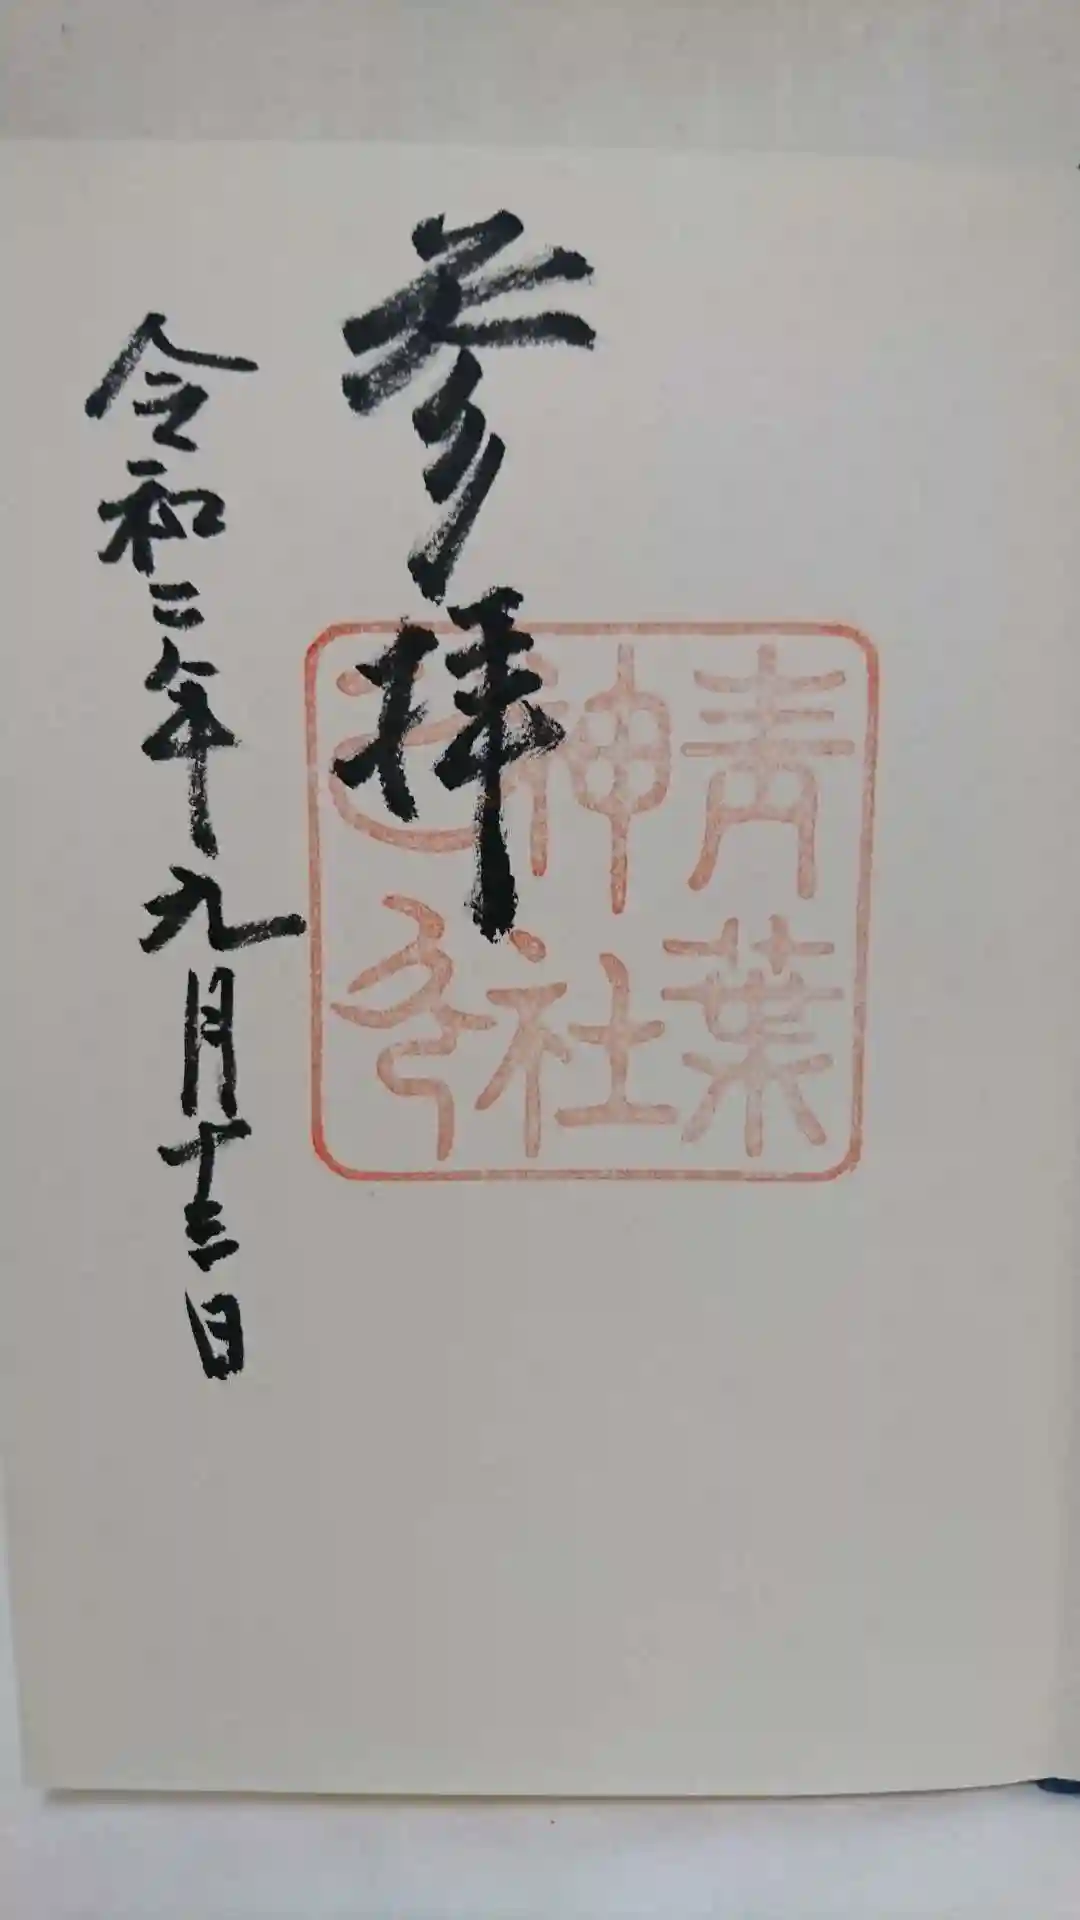 青葉
神社
之印
参拝
令和二年九月十三日